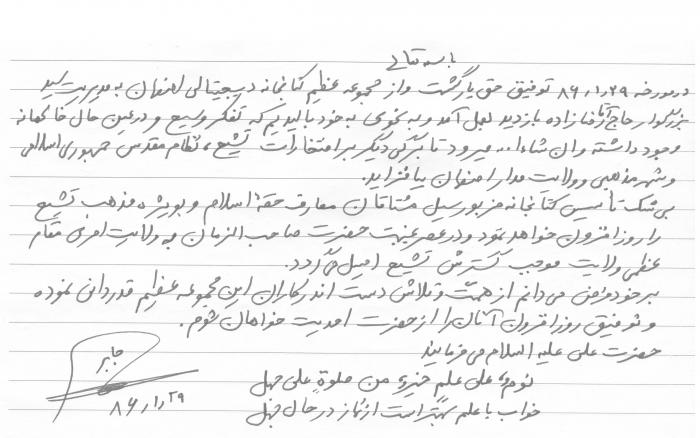 باسمه تعالی
در مورخه ۸۶،۱،۲۹ توفیق حق یار گشت و از مجموعه عظیم کتابخانه دیجیتالی اصفهان به مدیریت سید
بزرگوار حاج آقا فازاده بازدید بعمل آمد و به نحوی به خود بالیدیم که تفکر وسیع و در عین حال خالصانه
وجود داشته و ان شاءا... میرود تا برگی دیگر بر افتخارات تشیع، نظام مقدس جمهوری اسلامی
و شهر مذهبی و ولایت مدار اصفهان بیافزاید.
بی شک تأسیس کتابخانه مزبور سیل مشتاقان معارف حقهٔ اسلام و بویژه مذهب تشیع
را روزافزون خواهد نمود و در عصر غیبت حضرت صاحب الزمان و ولایت امری مقام
عظمی ولایت موجب گسترش تشیع اصیل می گردد.
بر خود فرض می دانم از همت و تلاش دست اندرکاران این مجموعه عظیم قدردانی نموده
و توفیق روزافزون آنان را از حضرت احدیت خواهان شوم.
حضرت علی علیه السلام می فرمایند
نومٌ علی علمٍ خیرٌ من صلوةٍ علی جهل
خواب با علم بهتر است از نماز در حال جهل
جابر
۸۶،۱،۲۹